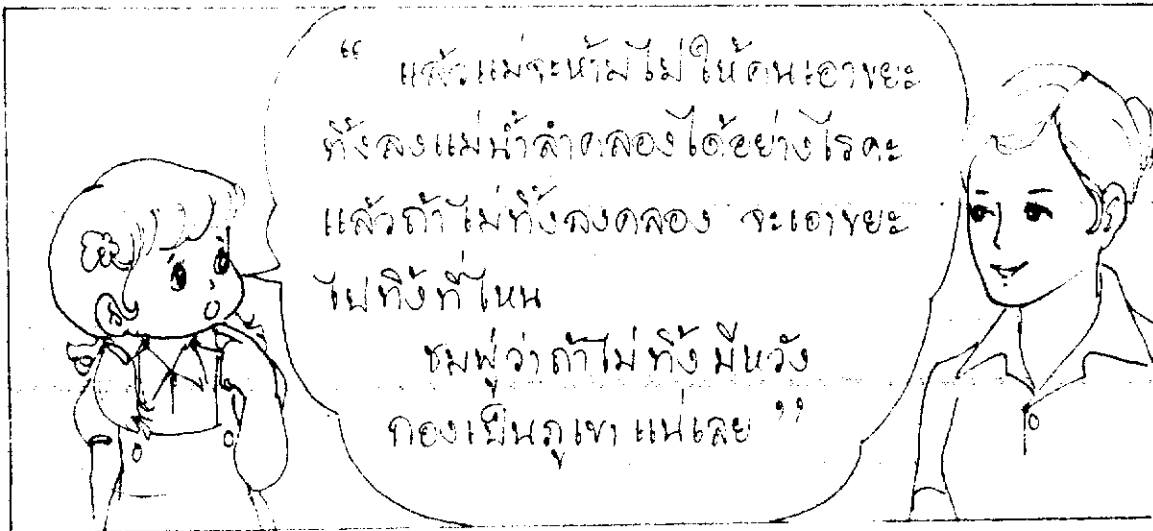 “ แล้วแม่จะห้ามไม่ให้คนเอาขยะ
ทิ้งลงแม่น้ำลำคลองได้อย่างไรคะ
แล้วถ้าไม่ทิ้งลงคลอง จะเอาขยะ
ไปทิ้งที่ไหน
ชมพู่ว่าถ้าไม่ทิ้ง มีหวัง
กองเป็นภูเขาแน่เลย ”